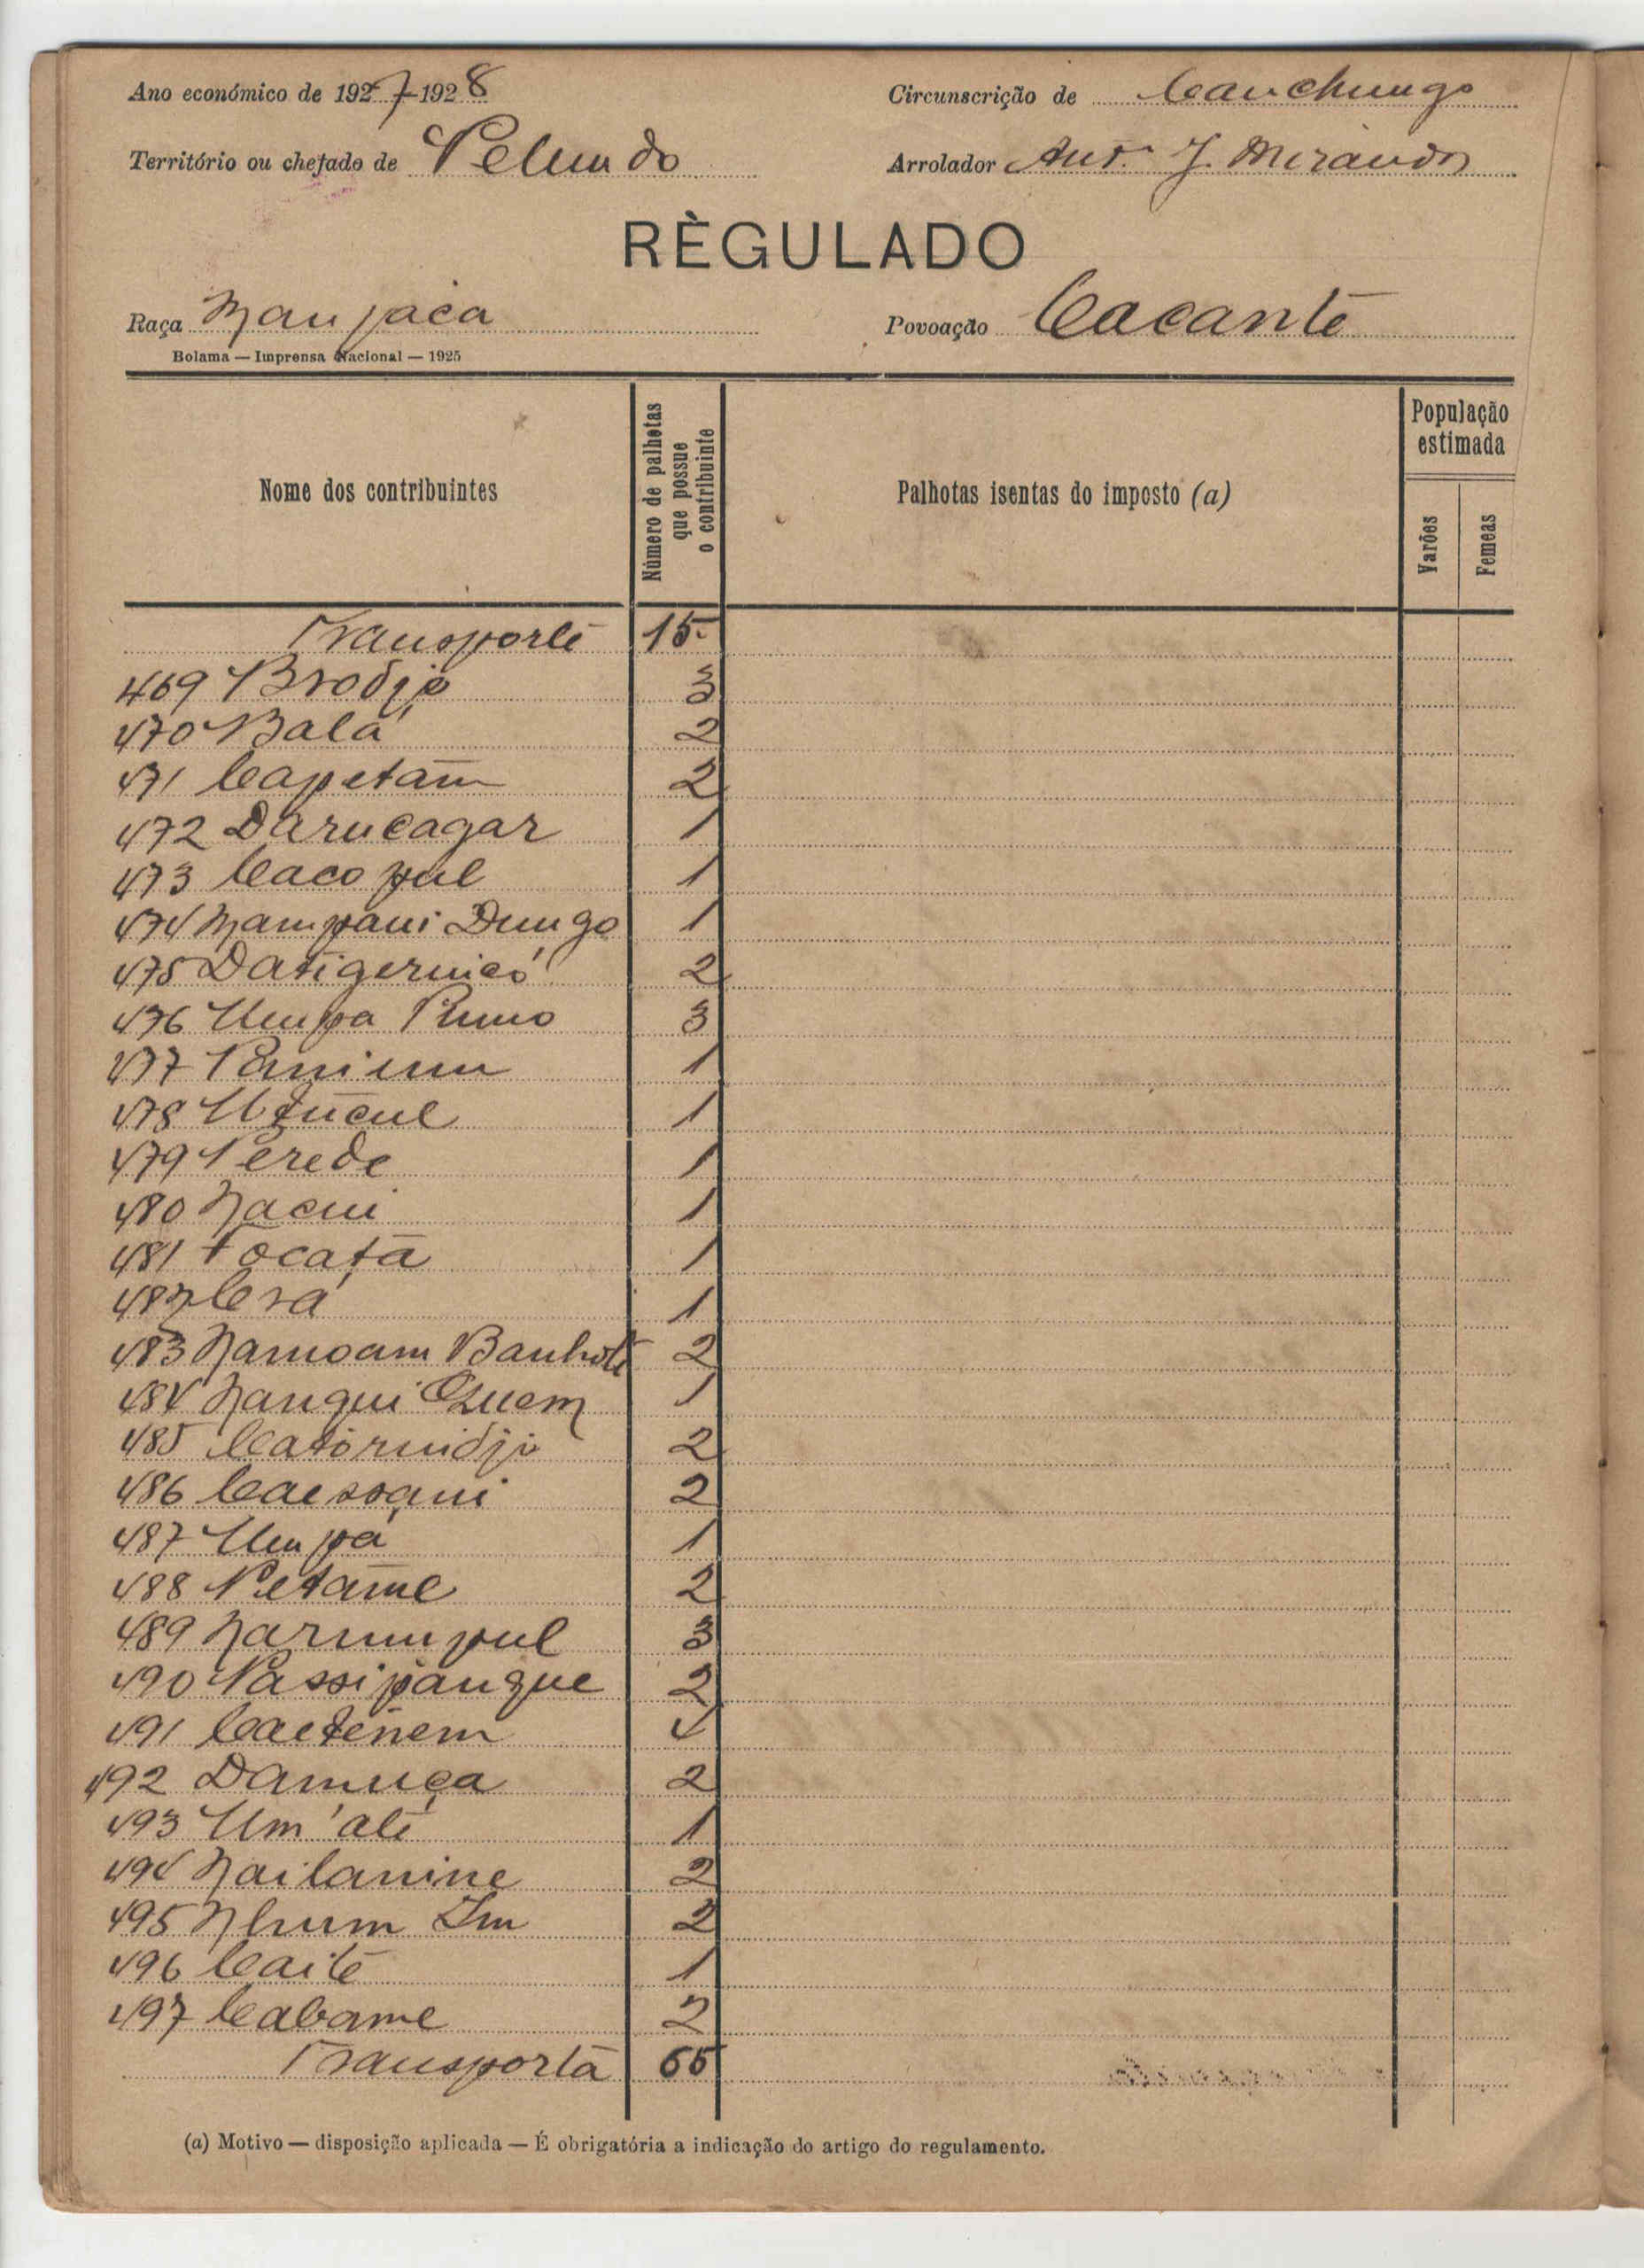 Ano económico de 1927-1928
Circunscrição de Canchungo
Território ou chefado de Pelundo
Arrolador Antº J. Miranda
RÈGULADO
Raça Manjaca
Povoação Cacante
Bolama — Imprensa Nacional — 1925
Nome dos contribuintes
Número de palhotas que possue o contribuinte
Palhotas isentas do imposto (a)
População estimada
Varões
Femeas
Transporte 15
469 Brodjo 3
470 Balá 2
471 Capetam 2
472 Darucagar 1
473 Cacopul 1
474 Mampani Dungo 1
475 2
476 Umpa 3
477 1
478 1
479 Perede 1
480 Nacui 1
481 Tocatā 1
482 1
483 Namoam 2
484 Nanqui Quem 1
485 2
486 2
487 Umpá 1
488 Petāme 2
489 Narumpul 3
490 Passipangue 2
491 4
492 Damuça 2
493 Um'alé 1
494 Nailanine 2
495 Nhum 2
496 Caité 1
497 Cabame 2
Transporta 65
(a) Motivo — disposição aplicada — É obrigatória a indicação do artigo do regulamento.